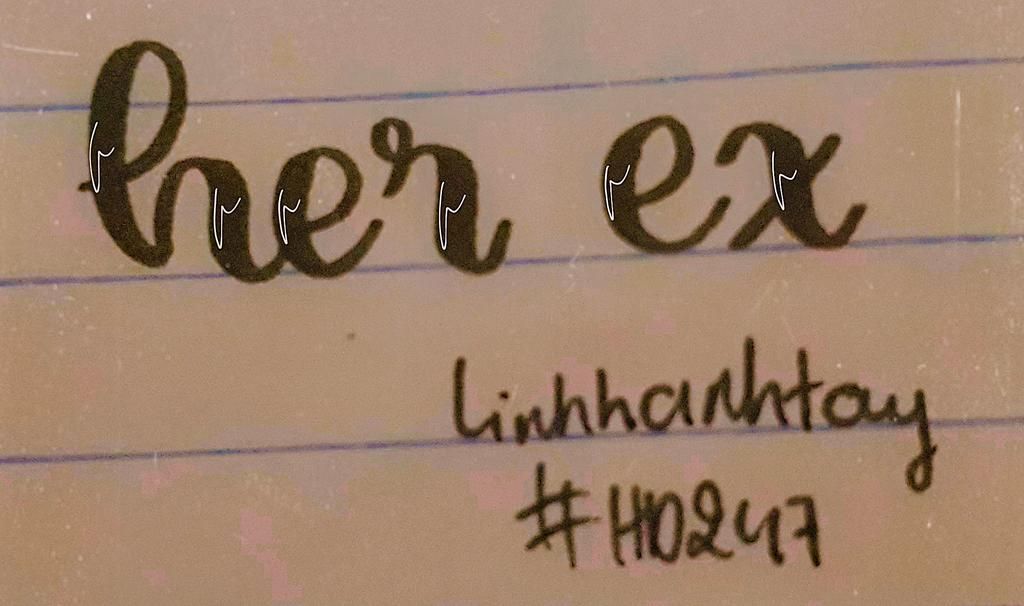 her ex
linhhanhtay
#HD247